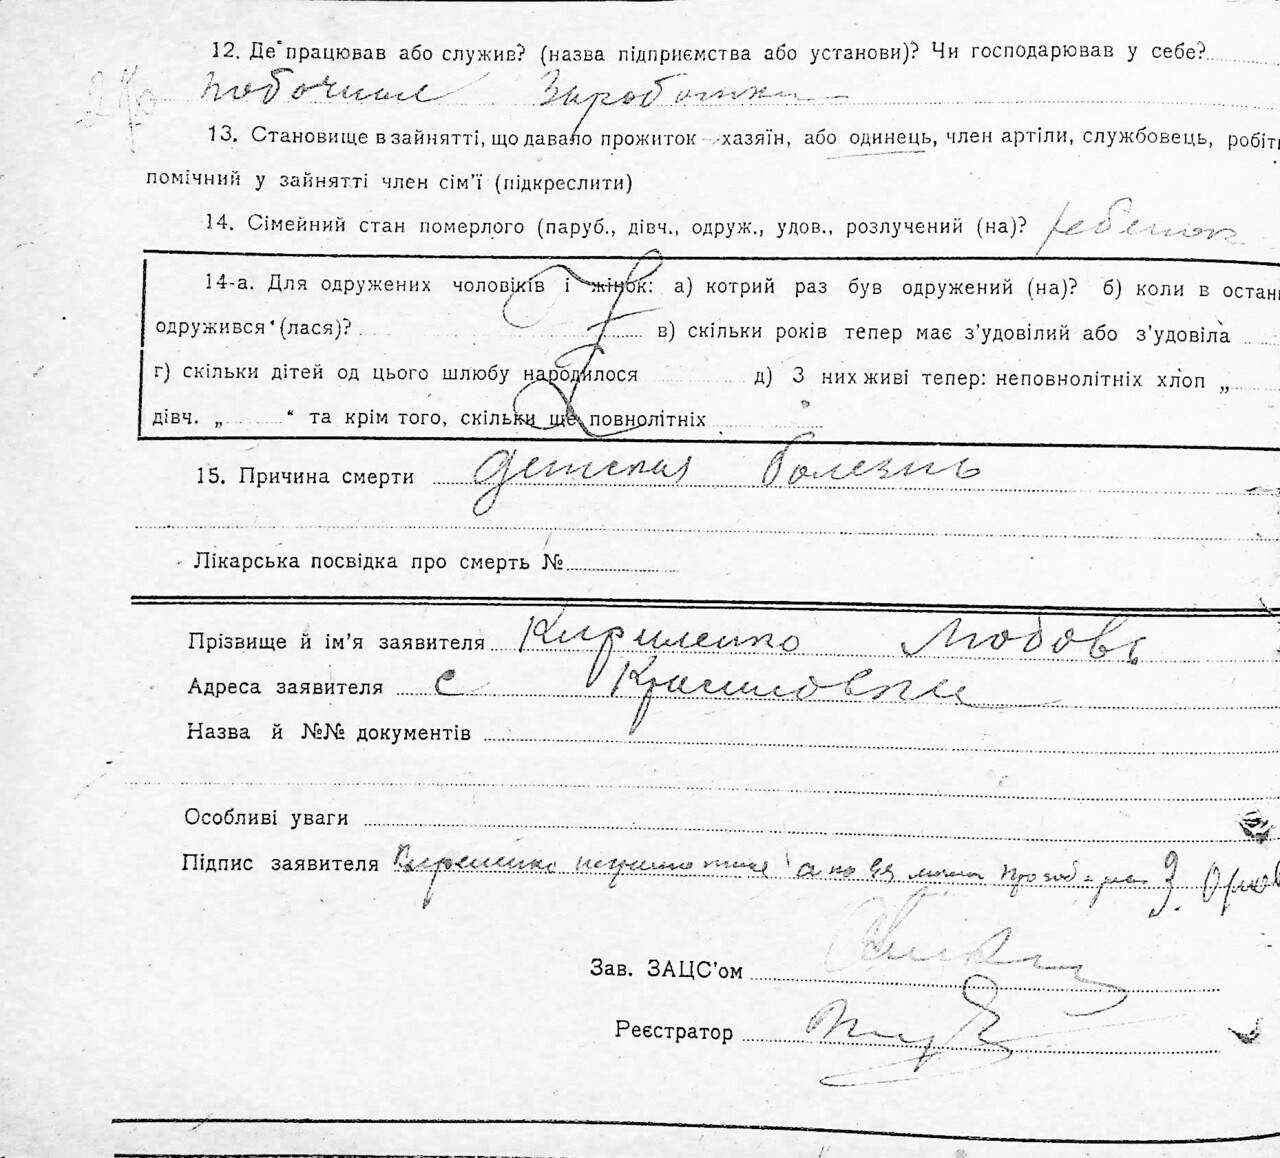 12. Де працював або служив? (назва підприємства або установи)? Чи господарював у себе?
побочные Заработки
13. Становище в зайнятті, що давало прожиток — хазяїн, або одинець, член артіли, службовець, робіт
помічний у зайнятті член сім'ї (підкреслити)
14. Сімейний стан померлого (паруб., дівч., одруж., удов., розлучений (на)? ребенок
14-а. Для одружених чоловіків і жінок: а) котрий раз був одружений (на)? б) коли в остан
одружився (лася)? в) скільки років тепер має з'удовілий або з'удовіла
г) скільки дітей од цього шлюбу народилося д) З них живі тепер: неповнолітніх хлоп „
дівч. „ “ та крім того, скільки ще повнолітніх
15. Причина смерти детская болезнь
Лікарська посвідка про смерть №
Прізвище й ім'я заявителя Кириленко Любовь
Адреса заявителя с Красиловки
Назва й №№ документів
Особливі уваги
Підпис заявителя Кириленко неграмотная а за ея
Зав. ЗАЦС'ом
Реєстратор